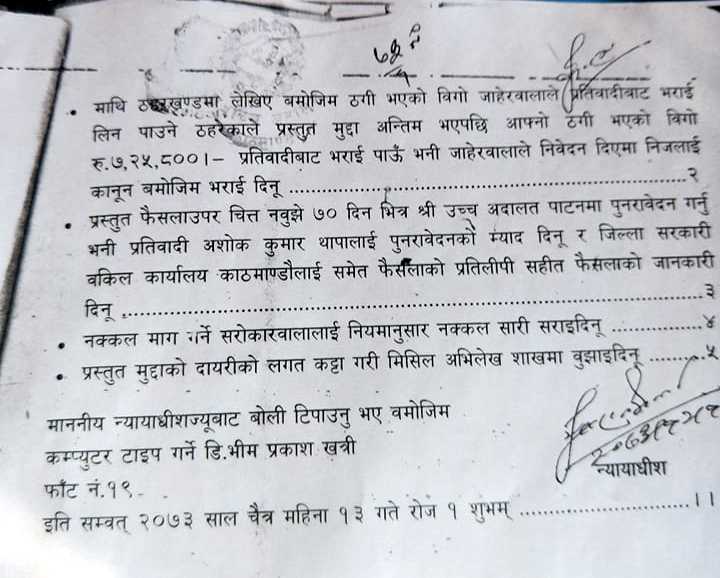 • माथि ठहरखण्डमा लेखिए बमोजिम ठगी भएको विगो जाहेरवालाले प्रतिवादीबाट भराई
लिन पाउने ठहरेकाले प्रस्तुत मुद्दा अन्तिम भएपछि आफ्नो ठगी भएको विगो
रु.७,२५,८००।– प्रतिवादीबाट भराई पाऊँ भनी जाहेरवालाले निवेदन दिएमा निजलाई
कानून बमोजिम भराई दिनू ...................................................२
• प्रस्तुत फैसलाउपर चित्त नवुझे ७० दिन भित्र श्री उच्च अदालत पाटनमा पुनरावेदन गर्नु
भनी प्रतिवादी अशोक कुमार थापालाई पुनरावेदनको म्याद दिनू र जिल्ला सरकारी
वकिल कार्यालय काठमाण्डौलाई समेत फैसलाको प्रतिलीपी सहीत फैसलाको जानकारी
दिनू ...........................................................................३
• नक्कल माग गर्ने सरोकारवालालाई नियमानुसार नक्कल सारी सराइदिनू ..............४
• प्रस्तुत मुद्दाको दायरीको लगत कट्टा गरी मिसिल अभिलेख शाखमा वुझाइदिनू .........५
माननीय न्यायाधीशज्यूबाट बोली टिपाउनु भए वमोजिम
कम्प्युटर टाइप गर्ने डि.भीम प्रकाश खत्री
न्यायाधीश
फाँट नं.१९
इति सम्वत् २०७३ साल चैत्र महिना १३ गते रोज १ शुभम् ..........................।।